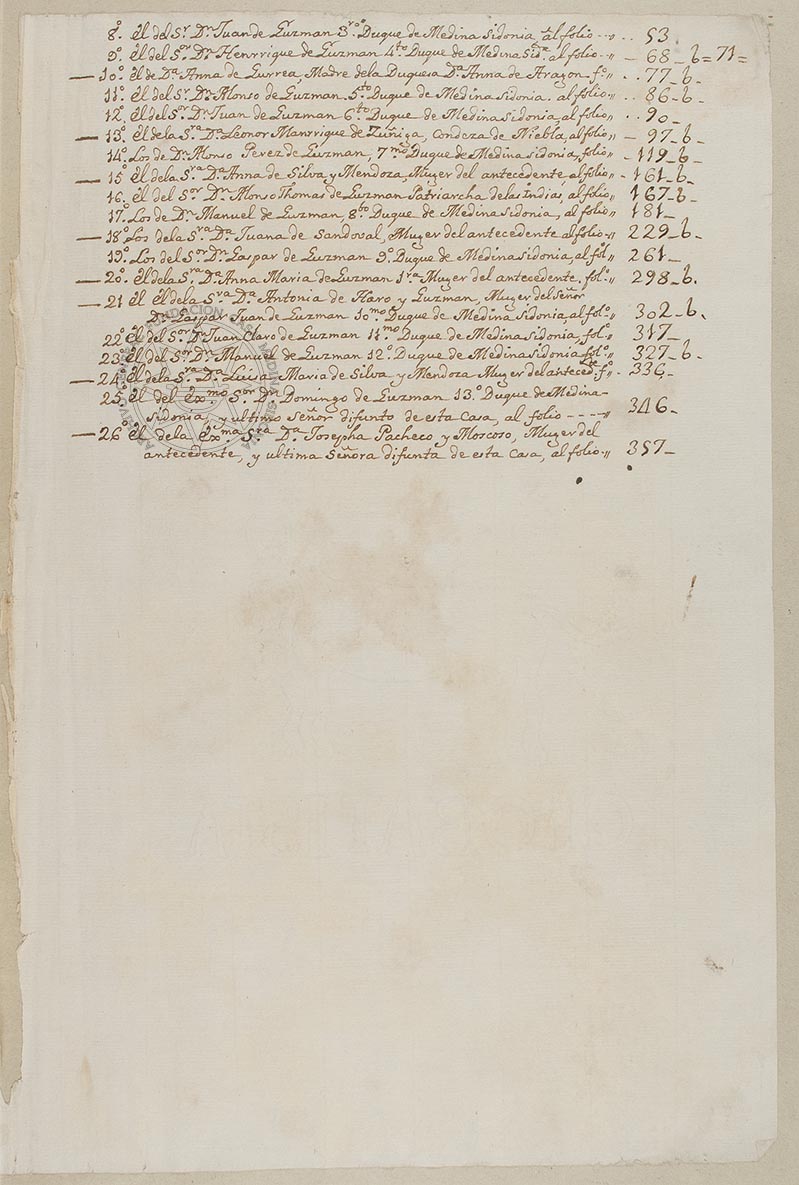 8º. él del Sr. Dn. Juan de Guzman 3ro. Duque de Medina Sidonia al folio -- 53.
9º. él del Sor. Dn. Henrrique de Guzman 4to. Duque de Medina Sida. al folio -- 68_b=71=
— 10º. él de Da. Anna de Gurrea, Madre de la Duquesa Da. Anna de Aragon. fº.. 77_b_
11º. él del Sr. Dn. Alonso de Guzman. 5to. Duque de Medina Sidonia. al folio.. 86_b_
12º. él del Sor. Dn. Juan de Guzman 6to. Duque de Medina Sidonia, al folio.. 90_
— 13º. él de la Sra. Da. Leonor Manrrique de Zuñiga, Condeza de Niebla, al folio - 97_b_
14º. Los de Dn. Alonso Perez de Guzman, 7mo. Duque de Medina Sidonia, folio - 119_b_
— 15º. él de la Sra. Da. Anna de Silva, y Mendoza, Muger del antecedente, al folio - 161_b_
16º. él del Sor. Dn. Alonso Thomas de Guzman Patriarcha de las Indias, al folio 167_b_
17º. Los de Dn. Manuel de Guzman, 8bo. Duque de Medina Sidonia, al folio 181_
— 18º. Los de la Sra. Da. Juana de Sandoval, Muger del antecedente al folio - 229_b_
19º. Los del Sor. Dn. Gaspar de Guzman 9º. Duque de Medina Sidonia, al fol. 261_
— 20º. él de la Sra. Da. Anna Maria de Guzman 1ra. Muger del antecedente. fol. 298_b.
— 21 él de la Sra. Da. Antonia de Haro y Guzman, Muger del Señor
Dn. Gaspar Juan de Guzman 10mo. Duque de Medina Sidonia, al folº. 302_b.
22º. él del Sor. Dn. Juan Claro de Guzman 11mo. Duque de Medina Sidonia, folº. 317_
23º. él del Sor. Dn. Manuel de Guzman 12º. Duque de Medina Sidonia folº. 327_b_
— 24º. él de la Sra. Da. Luisa Maria de Silva y Mendoza Muger del anteced. fº. 336_
25º. él del Exmo. Sor. Dn. Domingo de Guzman 13º. Duque de Medina-
Sidonia, y ultimo Señor difunto de esta Casa, al folio ---- 346_
— 26º. él de la Exma. Sra. Da. Josepha Pacheco, y Moscoso, Muger del
antecedente, y ultima Señora difunta de esta Casa, al folio.. 357_